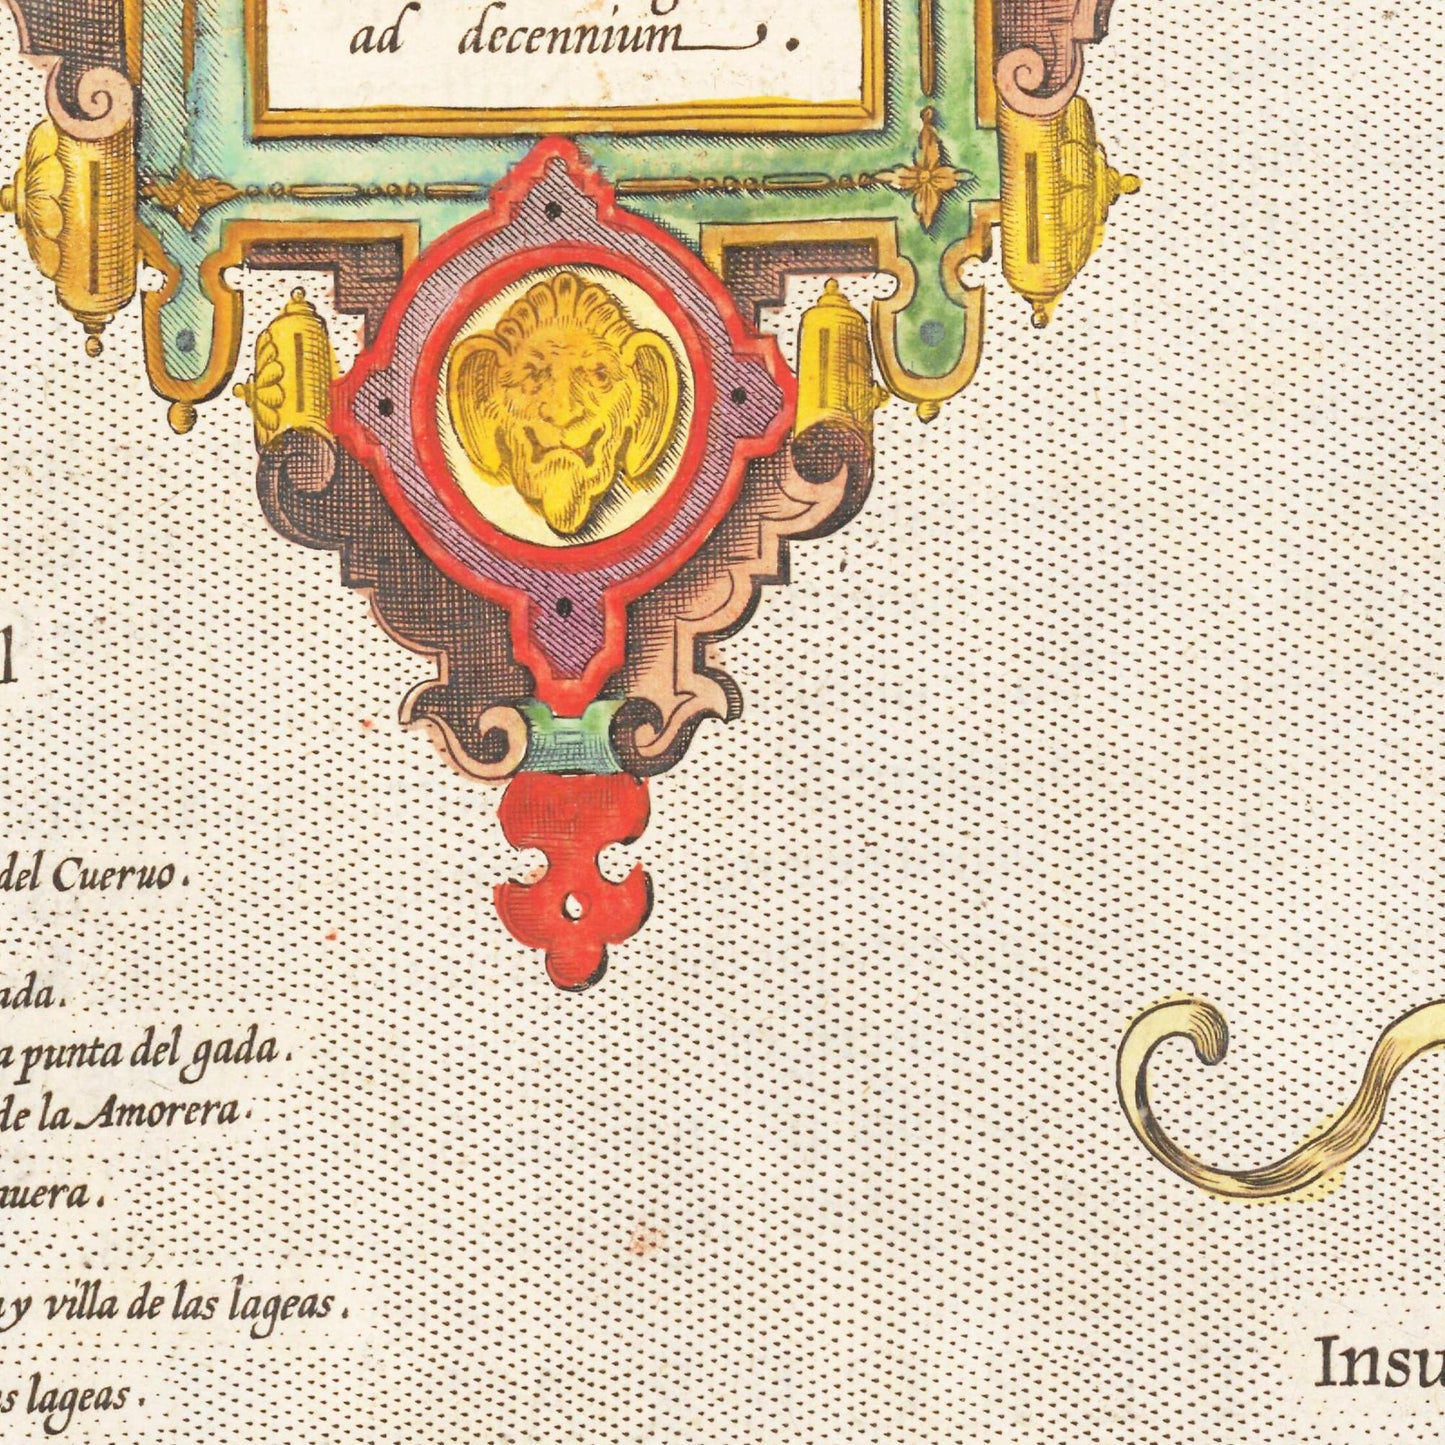 ad decennium.
del Cueruo.
punta del gada.
de la Amorera.
y villa de las lageas.
lageas.